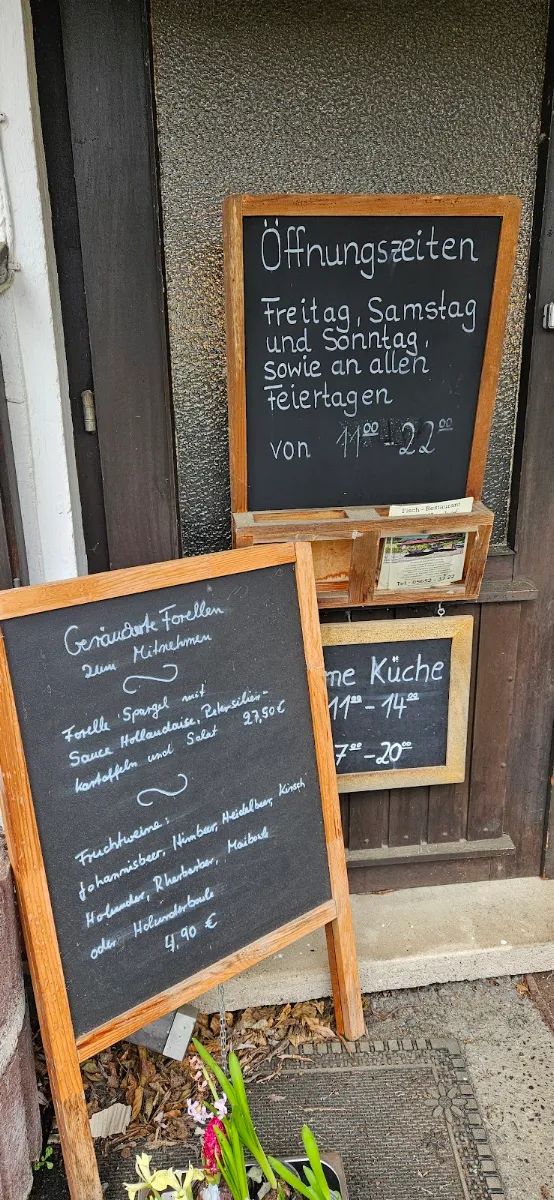 Öffnungszeiten
Freitag, Samstag
und Sonntag,
sowie an allen
Feiertagen
von 11⁰⁰ - 22⁰⁰
Fisch-Restaurant
Geräucherte Forellen
zum Mitnehmen
Forelle Spargel mit
Sauce Hollandaise, Petersilien-
kartoffeln und Salat 27,50 €
Fruchtweine:
Johannisbeer, Himbeer, Heidelbeer, Kirsch
Holunder, Rharbarber, Maibowle
oder Holunderbowle
4,90 €
me Küche
11⁰⁰ - 14⁰⁰
7⁰⁰ - 20⁰⁰